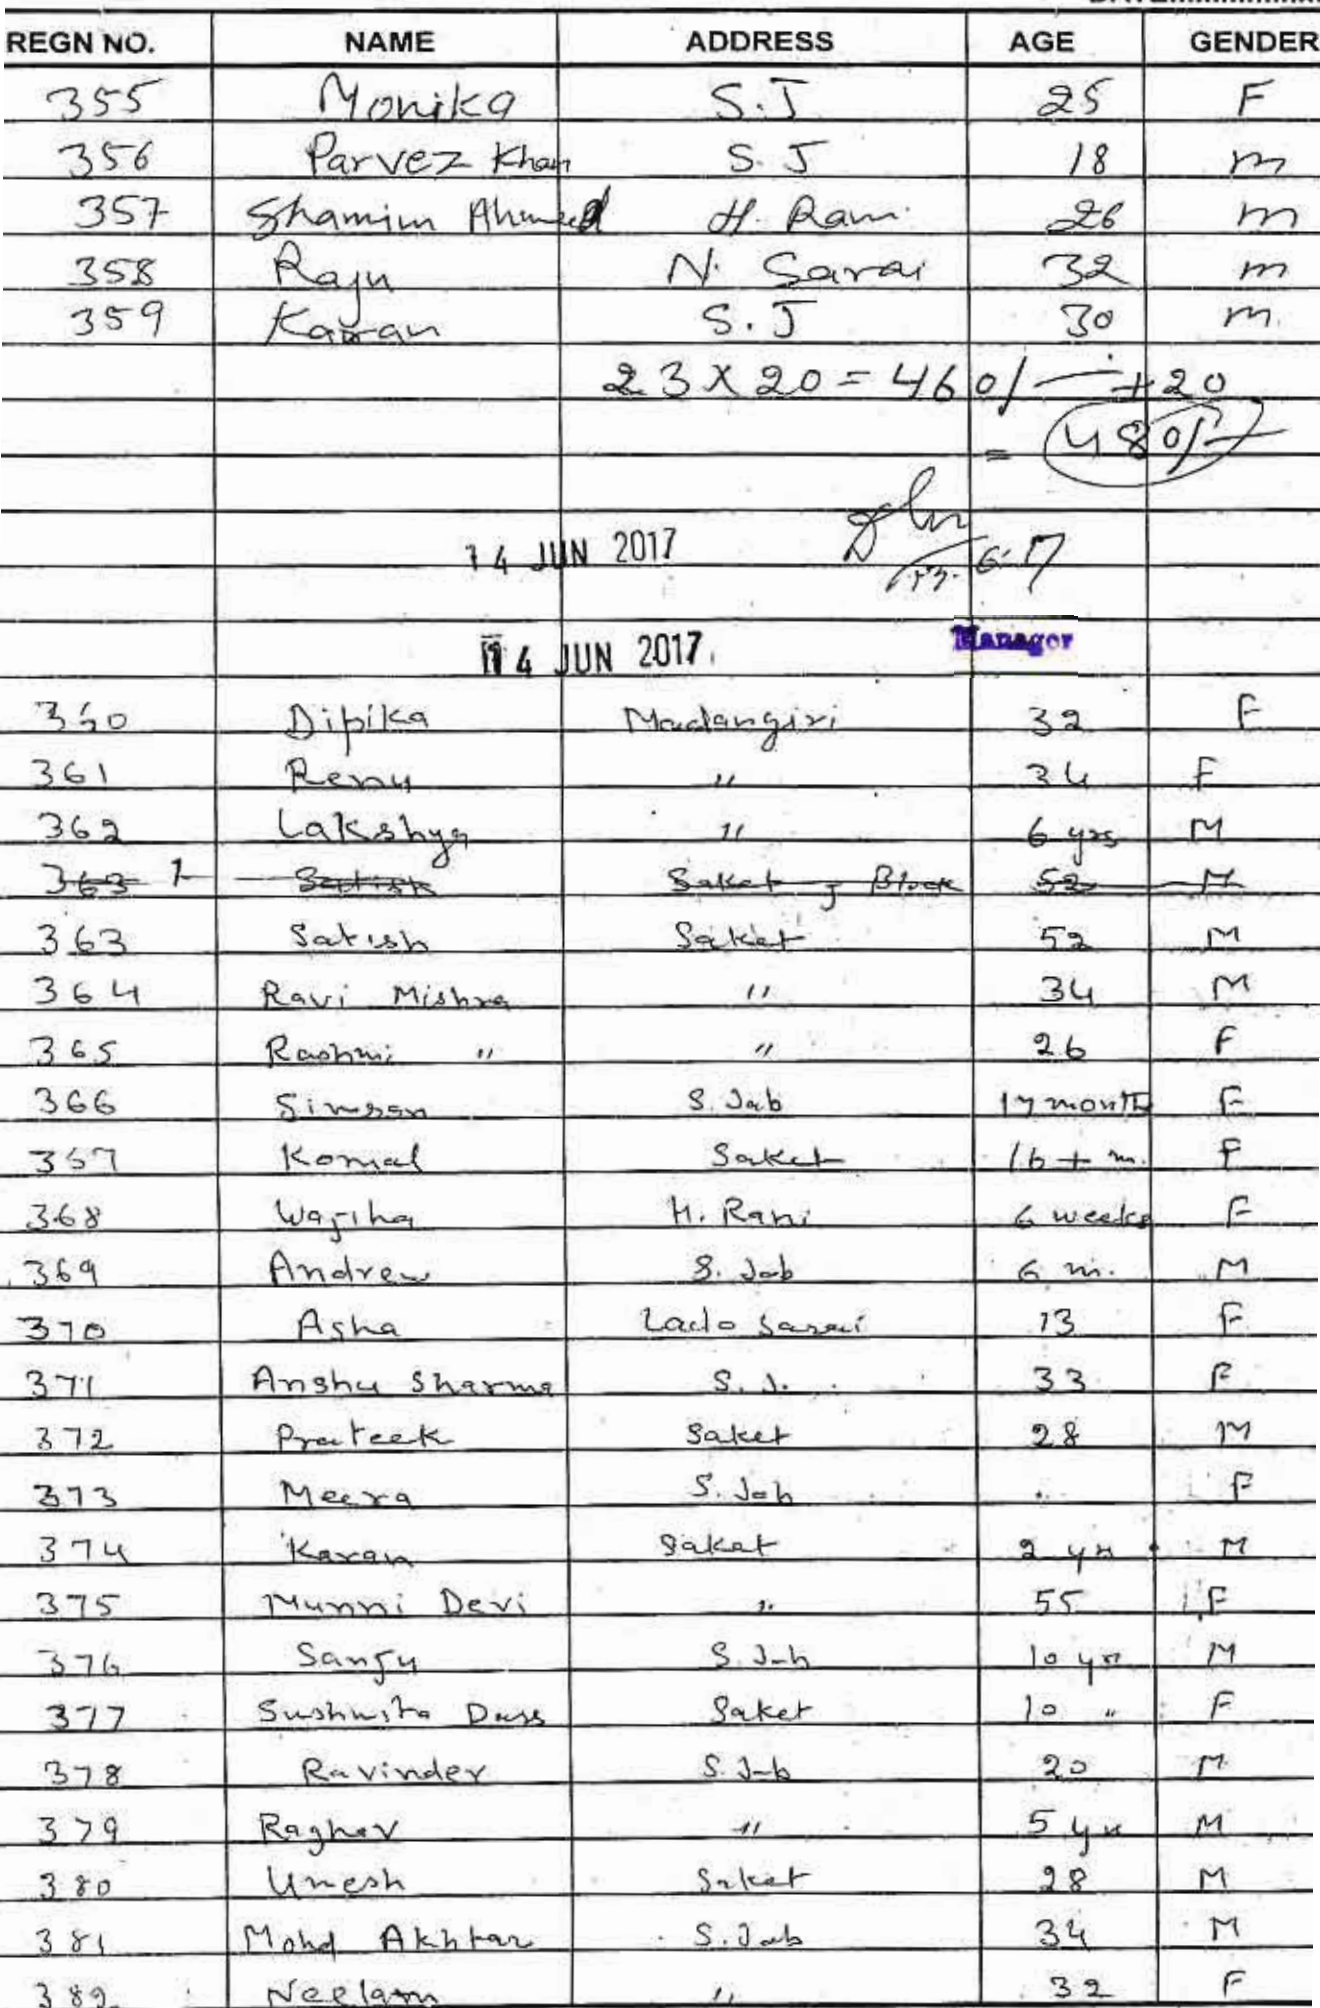 REGN NO. NAME ADDRESS AGE GENDER
355 Monika S.J 25 F
356 Parvez Khan S.J 18 m
357 Shamim Ahmed H. Rani 26 m
358 Raju N. Sarai 32 m
359 Karan S.J 30 m.
23 X 20 = 460/- +20
= 480/-
14 JUN 2017 6-17
14 JUN 2017. Manager
360 Dipika Madangiri 32 F
361 Renu " 34 F
362 Lakshya " 6 yrs M
363 1 Satish Saket J Block 52 M
363 Satish Saket 52 M
364 Ravi Mishra " 34 M
365 Rashmi " " 26 F
366 Simran S. Jab 17 month F
367 Komal Saket 1.6 + m. F
368 Wajiha H. Rani 6 weeks F
369 Andrew S. Jab 6 m. M
370 Asha Lado Sarai 13 F
371 Anshu Sharma S. J. 33 F
372 Prateek Saket 28 M
373 Meera S. Jab F
374 Karan Saket 2 yrs M
375 Munni Devi " 55 F
376 Sanju S. Jab 10 yrs M
377 Sushmita Dass Saket 10 " F
378 Ravinder S. Jab 20 M
379 Raghav " 5 yrs M
380 Umesh Saket 28 M
381 Mohd Akhtar S. Jab 34 M
382 Neelam " 32 F